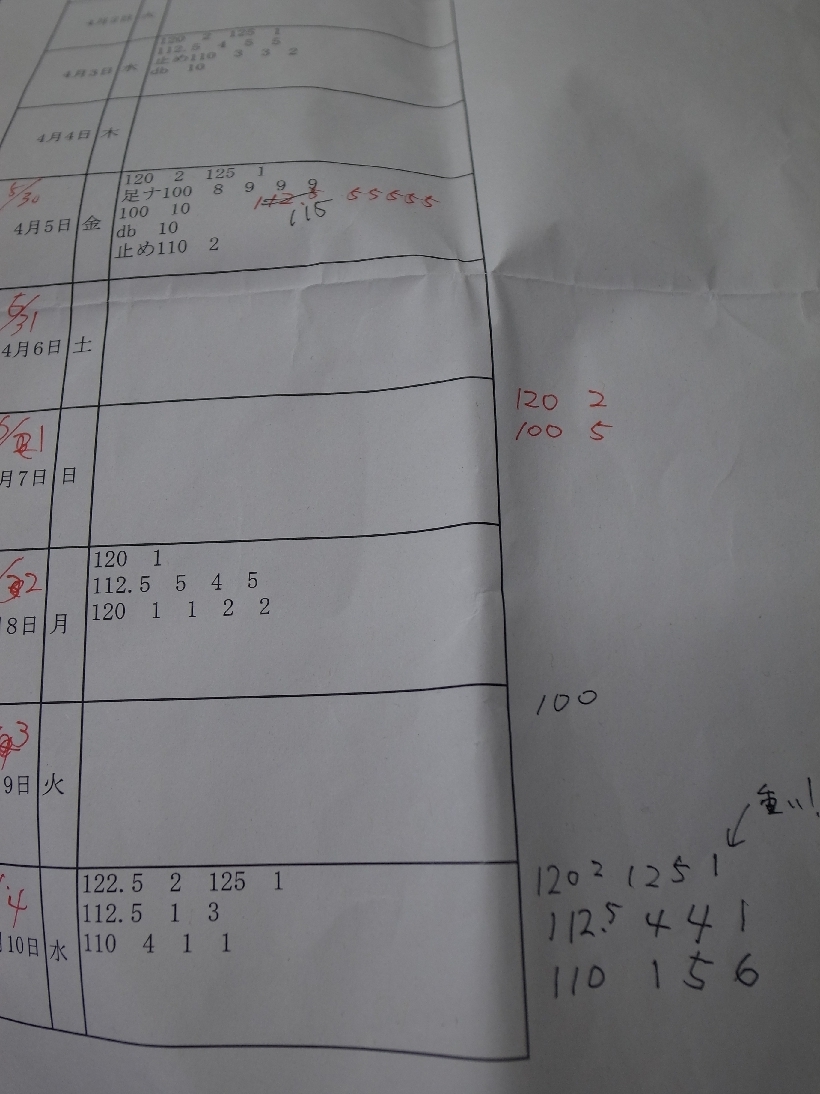 4月2日 火
120 2 125 1
112.5 4 5 5
4月3日 水
止め110 3 3 2
db 10
4月4日 木
5/30
4月5日 金
120 2 125 1
足ナ100 8 9 9 9
100 10
112.5 5 5 5 5 5
115
db 10
止め110 2
5/31
4月6日 土
120 2
100 5
1
月7日 日
120 1
112.5 5 4 5
120 1 1 2 2
2
8日 月
100
3
9日 火
重い!
122.5 2 125 1
112.5 1 3
110 4 1 1
4
10日 水
120 2 125 1
112.5 4 4 1
110 1 5 6